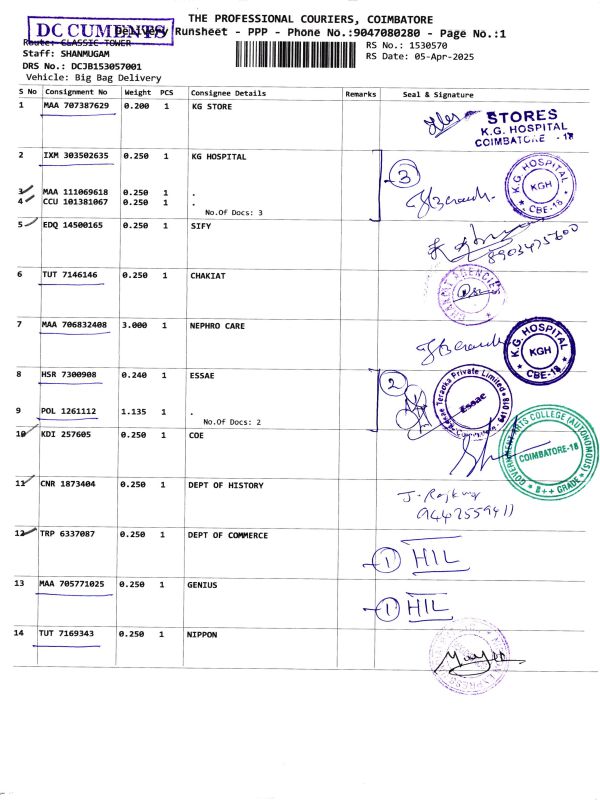 THE PROFESSIONAL COURIERS, COIMBATORE
DOCUMENTS
Delivery Runsheet - PPP - Phone No.:9047080280 - Page No.:1
Route: CLASSIC TOWER
RS No.: 1530570
Staff: SHANMUGAM
RS Date: 05-Apr-2025
DRS No.: DCJB153057001
Vehicle: Big Bag Delivery
S No Consignment No Weight PCS Consignee Details Remarks Seal & Signature
1 MAA 707387629 0.200 1 KG STORE
STORES
K.G. HOSPITAL
COIMBATORE - 18
2 IXM 303502635 0.250 1 KG HOSPITAL
3
K.G. HOSPITAL
KGH
* CBE-18 *
3 MAA 111069618 0.250 1 .
4 CCU 101381067 0.250 1 .
No.Of Docs: 3
5 EDQ 14500165 0.250 1 SIFY
8903475600
6 TUT 7146146 0.250 1 CHAKIAT
AGENCIES
7 MAA 706832408 3.000 1 NEPHRO CARE
K.G. HOSPITAL
KGH
* CBE-18 *
8 HSR 7300908 0.240 1 ESSAE
2
Essae Teraoka Private Limited
Essae
9 POL 1261112 1.135 1 .
No.Of Docs: 2
10 KDI 257605 0.250 1 COE
GOVERNMENT ARTS COLLEGE (AUTONOMOUS)
COIMBATORE-18
* B++ GRADE *
11 CNR 1873404 0.250 1 DEPT OF HISTORY
J. Rajkumar
9442559411
12 TRP 6337087 0.250 1 DEPT OF COMMERCE
1 HIL
13 MAA 705771025 0.250 1 GENIUS
1 HIL
14 TUT 7169343 0.250 1 NIPPON
EXPRESS